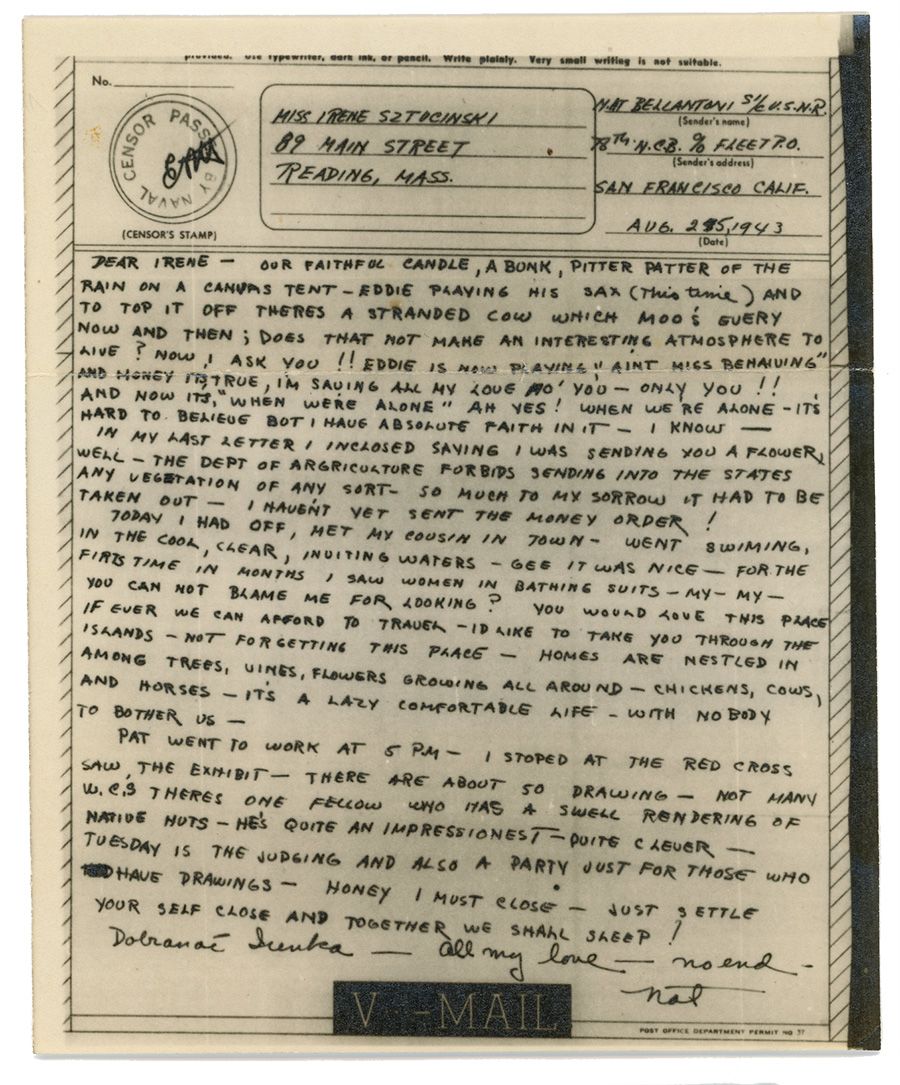 provided. Use typewriter, dark ink, or pencil. Write plainly. Very small writing is not suitable.
No.
CENSOR PASSED BY NAVAL
(CENSOR'S STAMP)
MISS IRENE SZTUCINSKI
89 MAIN STREET
READING, MASS.
NAT BELLANTONI S 1/C U.S.N.R.
(Sender's name)
78TH N.C.B. C/O FLEET P.O.
(Sender's address)
SAN FRANCISCO CALIF.
AUG. 25, 1943
(Date)
DEAR IRENE — OUR FAITHFUL CANDLE, A BUNK, PITTER PATTER OF THE
RAIN ON A CANVAS TENT — EDDIE PLAYING HIS SAX (This time) AND
TO TOP IT OFF THERES A STRANDED COW WHICH MOO'S EVERY
NOW AND THEN; DOES THAT NOT MAKE AN INTERESTING ATMOSPHERE TO
LIVE? NOW, I ASK YOU!! EDDIE IS NOW PLAYING "AINT MISS BEHAIVING"
AND HONEY ITS TRUE, I'M SAVING ALL MY LOVE FO' YOU — ONLY YOU!!
AND NOW ITS, "WHEN WE'RE ALONE" AH YES! WHEN WE'RE ALONE - IT'S
HARD TO BELIEVE BUT I HAVE ABSOLUTE FAITH IN IT — I KNOW —
IN MY LAST LETTER I INCLOSED SAYING I WAS SENDING YOU A FLOWER,
WELL — THE DEPT OF ARGRICULTURE FORBIDS SENDING INTO THE STATES
ANY VEGETATION OF ANY SORT - SO MUCH TO MY SORROW IT HAD TO BE
TAKEN OUT — I HAVEN'T YET SENT THE MONEY ORDER!
TODAY I HAD OFF, MET MY COUSIN IN TOWN - WENT SWIMING,
IN THE COOL, CLEAR, INVITING WATERS - GEE IT WAS NICE — FOR THE
FIRTS TIME IN MONTHS I SAW WOMEN IN BATHING SUITS — MY — MY —
YOU CAN NOT BLAME ME FOR LOOKING? YOU WOULD LOVE THIS PLACE
IF EVER WE CAN AFFORD TO TRAVEL - I'D LIKE TO TAKE YOU THROUGH THE
ISLANDS — NOT FORGETTING THIS PLACE — HOMES ARE NESTLED IN
AMONG TREES, VINES, FLOWERS GROWING ALL AROUND — CHICKENS, COWS,
AND HORSES — IT'S A LAZY COMFORTABLE LIFE - WITH NOBODY
TO BOTHER US —
PAT WENT TO WORK AT 5 PM — I STOPED AT THE RED CROSS
SAW, THE EXHIBIT — THERE ARE ABOUT 50 DRAWING — NOT MANY
W.C.S THERES ONE FELLOW WHO HAS A SWELL RENDERING OF
NATIVE HUTS — HE'S QUITE AN IMPRESSIONEST — QUITE CLEVER —
TUESDAY IS THE JUDGING AND ALSO A PARTY JUST FOR THOSE WHO
HAVE DRAWINGS — HONEY I MUST CLOSE — JUST SETTLE
YOUR SELF CLOSE AND TOGETHER WE SHALL SLEEP!
Dobranoć Irenka — All my love — no end -
Nat
V···-MAIL
POST OFFICE DEPARTMENT PERMIT NO 37